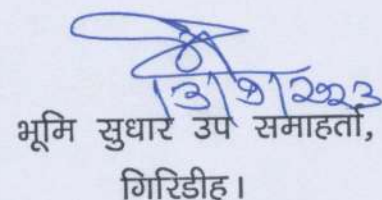 13/9/2023
भूमि सुधार उप समाहर्ता,
गिरिडीह।